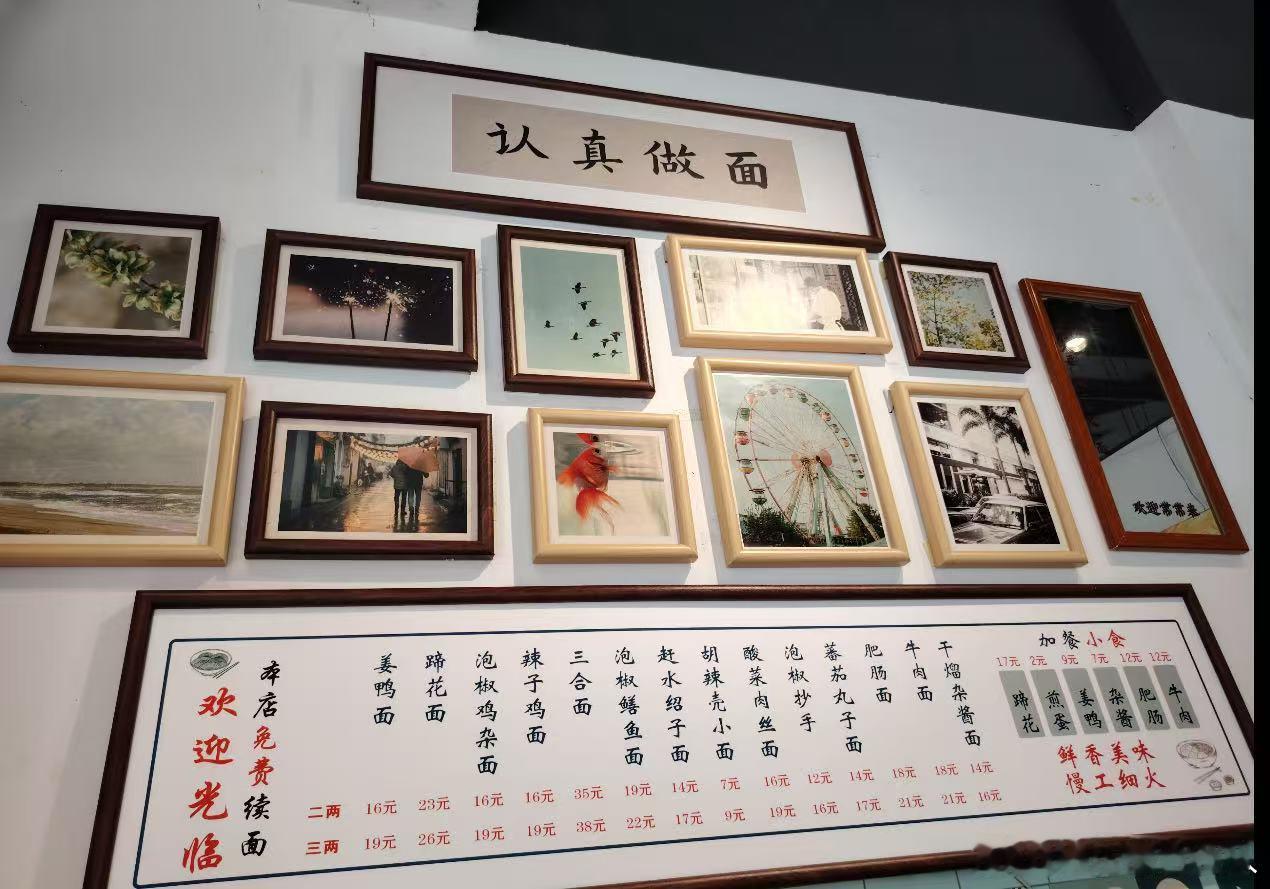 认真做面
欢迎常常来
欢迎光临
本店免费续面
姜鸭面
蹄花面
泡椒鸡杂面
辣子鸡面
三合面
泡椒鳝鱼面
赶水绍子面
胡辣壳小面
酸菜肉丝面
泡椒抄手
蕃茄丸子面
肥肠面
牛肉面
干熘杂酱面
二两 16元 23元 16元 16元 35元 19元 14元 7元 16元 12元 14元 18元 18元 14元
三两 19元 26元 19元 19元 38元 22元 17元 9元 19元 16元 17元 21元 21元 16元
加餐小食
17元 2元 9元 7元 12元 12元
蹄花
煎蛋
姜鸭
杂酱
肥肠
牛肉
鲜香美味
慢工细火